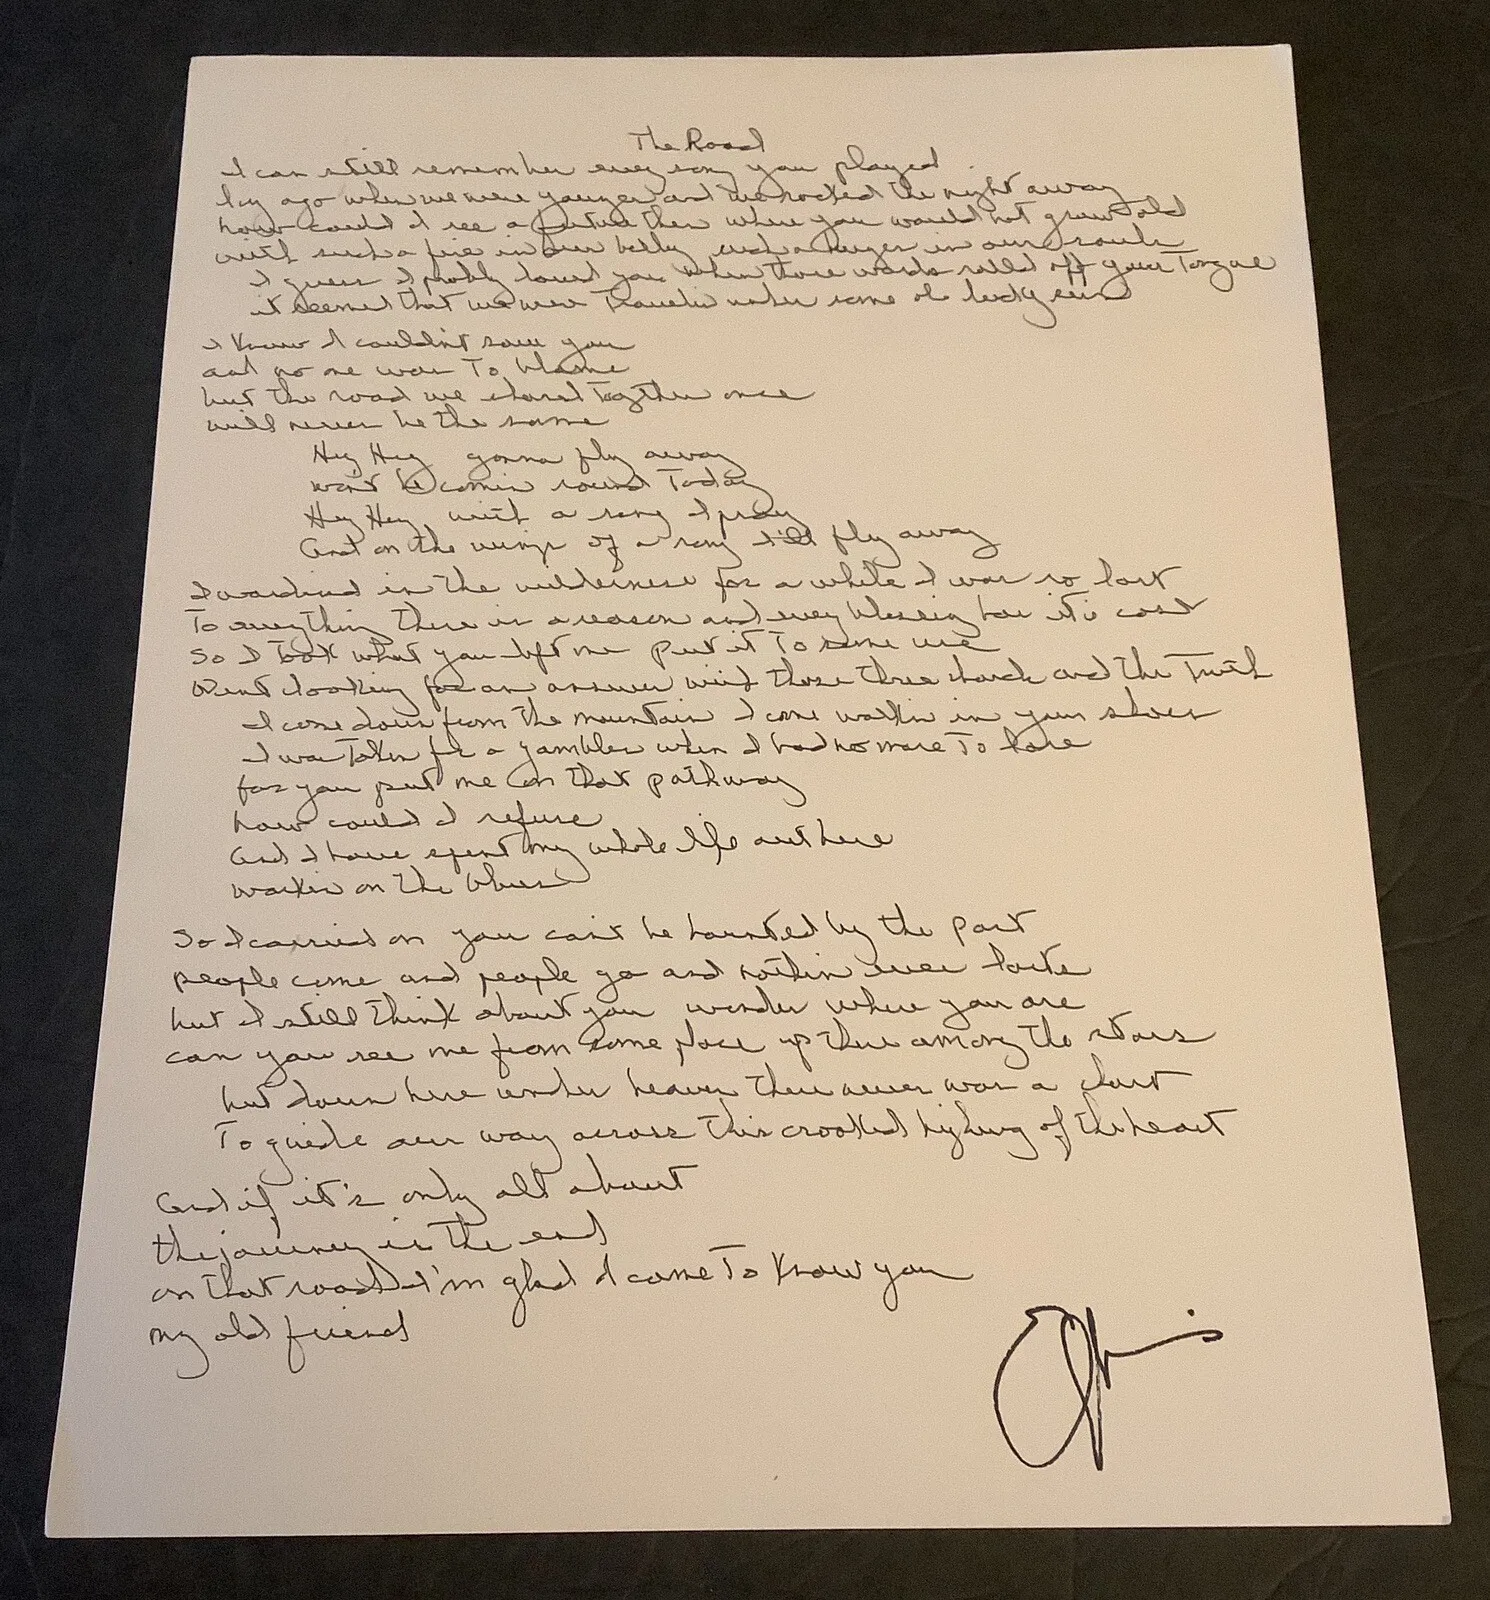 The Road
I can still remember every song you played
long ago when we were younger and we rocked the night away
how could I see a future then where you would not grow old
with such a fire in our belly such a hunger in our souls
I guess I probly loved you when those words rolled off your Tongue
it seemed that we were Travelin under some ole lucky sun
I know I couldn't save you
and no one was To blame
but the road we shared Together once
will never be the same
Hey Hey gonna fly away
won't be comin round Today
Hey Hey with a song I pray
And on the wings of a song I'll fly away
I wandered in the wilderness for a while I was so lost
To everything there is a reason and every blessing has it's cost
So I took what you left me put it To some use
Went looking for an answer with those three chords and the Truth
I come down from the mountain I come walkin in your shoes
I was Taken for a gambler when I had no more To lose
for you put me on that pathway
how could I refuse
And I have spent my whole life out here
workin on the blues
So I carried on you can't be haunted by the past
people come and people go and nothin ever lasts
but I still think about you wonder where you are
can you see me from some place up there among the stars
but down here under heaven there never was a chart
To guide our way across this crooked highway of the heart
And if it's only all about
the journey in the end
on that road I'm glad I came To Know you
my old friend